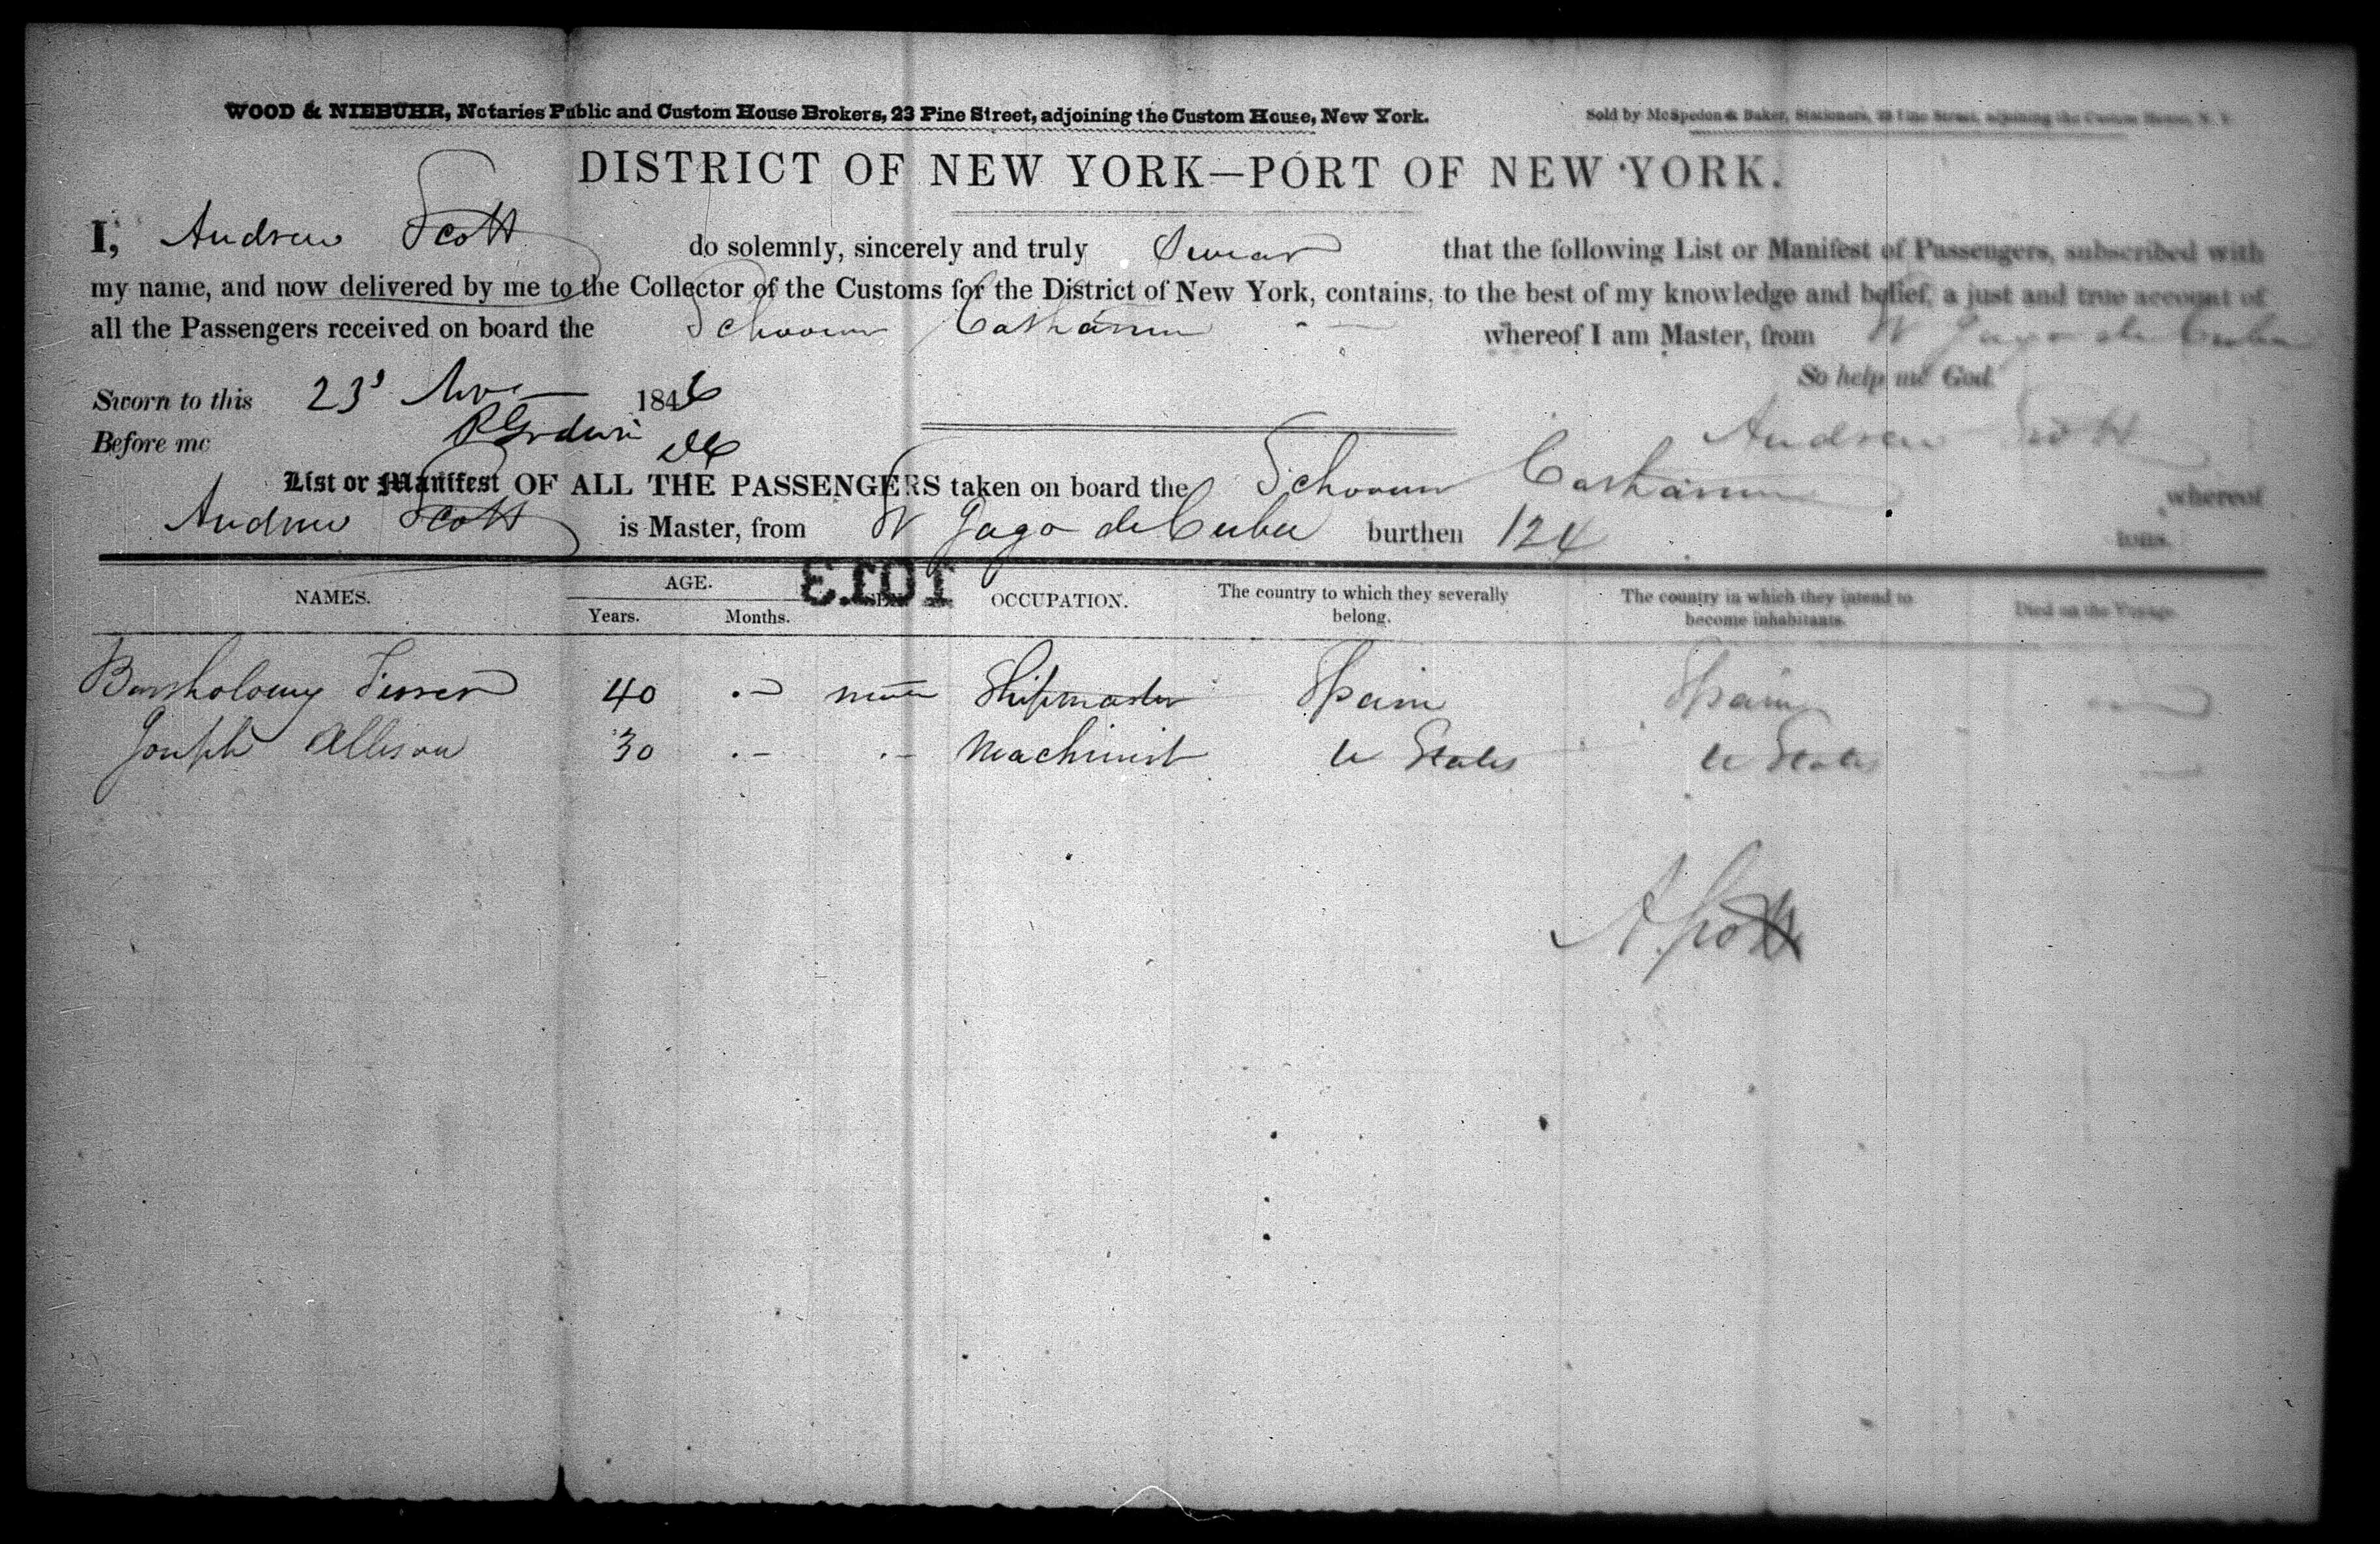 WOOD & NIEBUHR, Notaries Public and Custom House Brokers, 23 Pine Street, adjoining the Custom House, New York.
Sold by McSpedon & Baker, Stationers, Pine Street, adjoining the Custom House, N. Y.
DISTRICT OF NEW YORK—PORT OF NEW YORK.
I, Andrew Scott do solemnly, sincerely and truly Swear that the following List or Manifest of Passengers, subscribed with
my name, and now delivered by me to the Collector of the Customs for the District of New York, contains, to the best of my knowledge and belief, a just and true account of
all the Passengers received on board the Schooner Catharine whereof I am Master, from St Jago de Cuba
So help me God.
Sworn to this 23d Nov 1846
Andrew Scott
Before me
List or Manifest OF ALL THE PASSENGERS taken on board the Schooner Catharine whereof
Andrew Scott is Master, from St Jago de Cuba burthen 124 tons.
1013
NAMES. AGE. Years. Months. SEX. OCCUPATION. The country to which they severally belong. The country in which they intend to become inhabitants. Died on the Voyage.
40 Shipmaster Spain Spain
Joseph Allison 30 Machinist U States U States
A. Scott